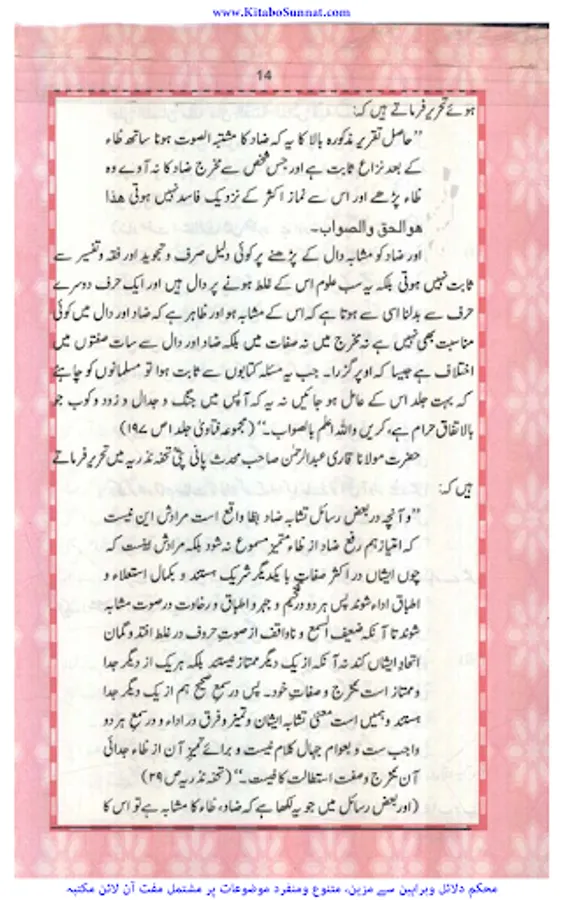 www.KitaboSunnat.com
14
ہوئے تحریر فرماتے ہیں کہ:
”حاصل تقریر مذکورہ بالا کا یہ کہ ضاد کا مشتبہ الصوت ہونا ساتھ ظاء
کے بعد نزاع ثابت ہے اور جس شخص سے مخرج ضاد کا نہ آوے وہ
ظاء پڑھے اور اس سے نماز اکثر کے نزدیک فاسد نہیں ہوتی ھذا
ھوالحق والصواب۔
اور ضاد کو مشابہ دال کے پڑھنے پر کوئی دلیل صرف و تجوید اور فقہ و تفسیر سے
ثابت نہیں ہوتی بلکہ یہ سب علوم اس کے غلط ہونے پر دال ہیں اور ایک حرف دوسرے
حرف سے بدلنا اسی سے ہوتا ہے کہ اس کے مشابہ ہو اور ظاہر ہے کہ ضاد اور دال میں کوئی
مناسبت بھی نہیں ہے نہ مخرج میں نہ صفات میں بلکہ ضاد اور دال سے سات صفتوں میں
اختلاف ہے جیسا کہ اوپر گزرا۔ جب یہ مسئلہ کتابوں سے ثابت ہوا تو مسلمانوں کو چاہئے
کہ بہت جلد اس کے عامل ہو جائیں نہ یہ کہ آپس میں جنگ و جدال و زود و کوب جو
بالاتفاق حرام ہے، کریں واللہ اعلم بالصواب۔“ (مجموعہ فتاویٰ جلد ۱ ص ۱۹۷)
حضرت مولانا قاری عبدالرحمٰن صاحب محدث پانی پتی تحفہ نذریہ میں تحریر فرماتے
ہیں کہ:
”و آنچہ در بعض رسائل تشابہ ضاد بظا واقع است مرادش این نیست
کہ امتیاز ہم رفع ضاد از ظاء متمیز مسموع نہ شود بلکہ مرادش اینست کہ
چوں ایشاں در اکثر صفات با یکدیگر شریک ہستند و بکمال استعلاء و
اطباق اداء شوند پس ہر دو در تفخیم و جہر و اطباق و رخاوت در صوت مشابہ
شوند تا آنکہ ضعیف السمع و ناواقف از صوت حروف در غلط افتد و گمان
اتحاد ایشاں کند نہ آنکہ از یک دیگر ممتاز نیستند بلکہ ہر یک از دیگر جدا
و ممتاز است بمخرج و صفات خود۔ پس در سمع صحیح ہم از یک دیگر جدا
ہستند و ہمیں است معنی تشابہ ایشان و تمیز و فرق در اداء و در سمع ہر دو
واجب ست و بعوام جہال کلام نیست و برائے تمیز آن از ظاء جدائی
آن بمخرج و صفت استطالت کافیست۔“ (تحفہ نذریہ ص ۲۹)
(اور بعض رسائل میں جو یہ لکھا ہے کہ ضاد، ظاء کا مشابہ ہے تو اس کا
محکم دلائل وبراہین سے مزین، متنوع ومنفرد موضوعات پر مشتمل مفت آن لائن مکتبہ